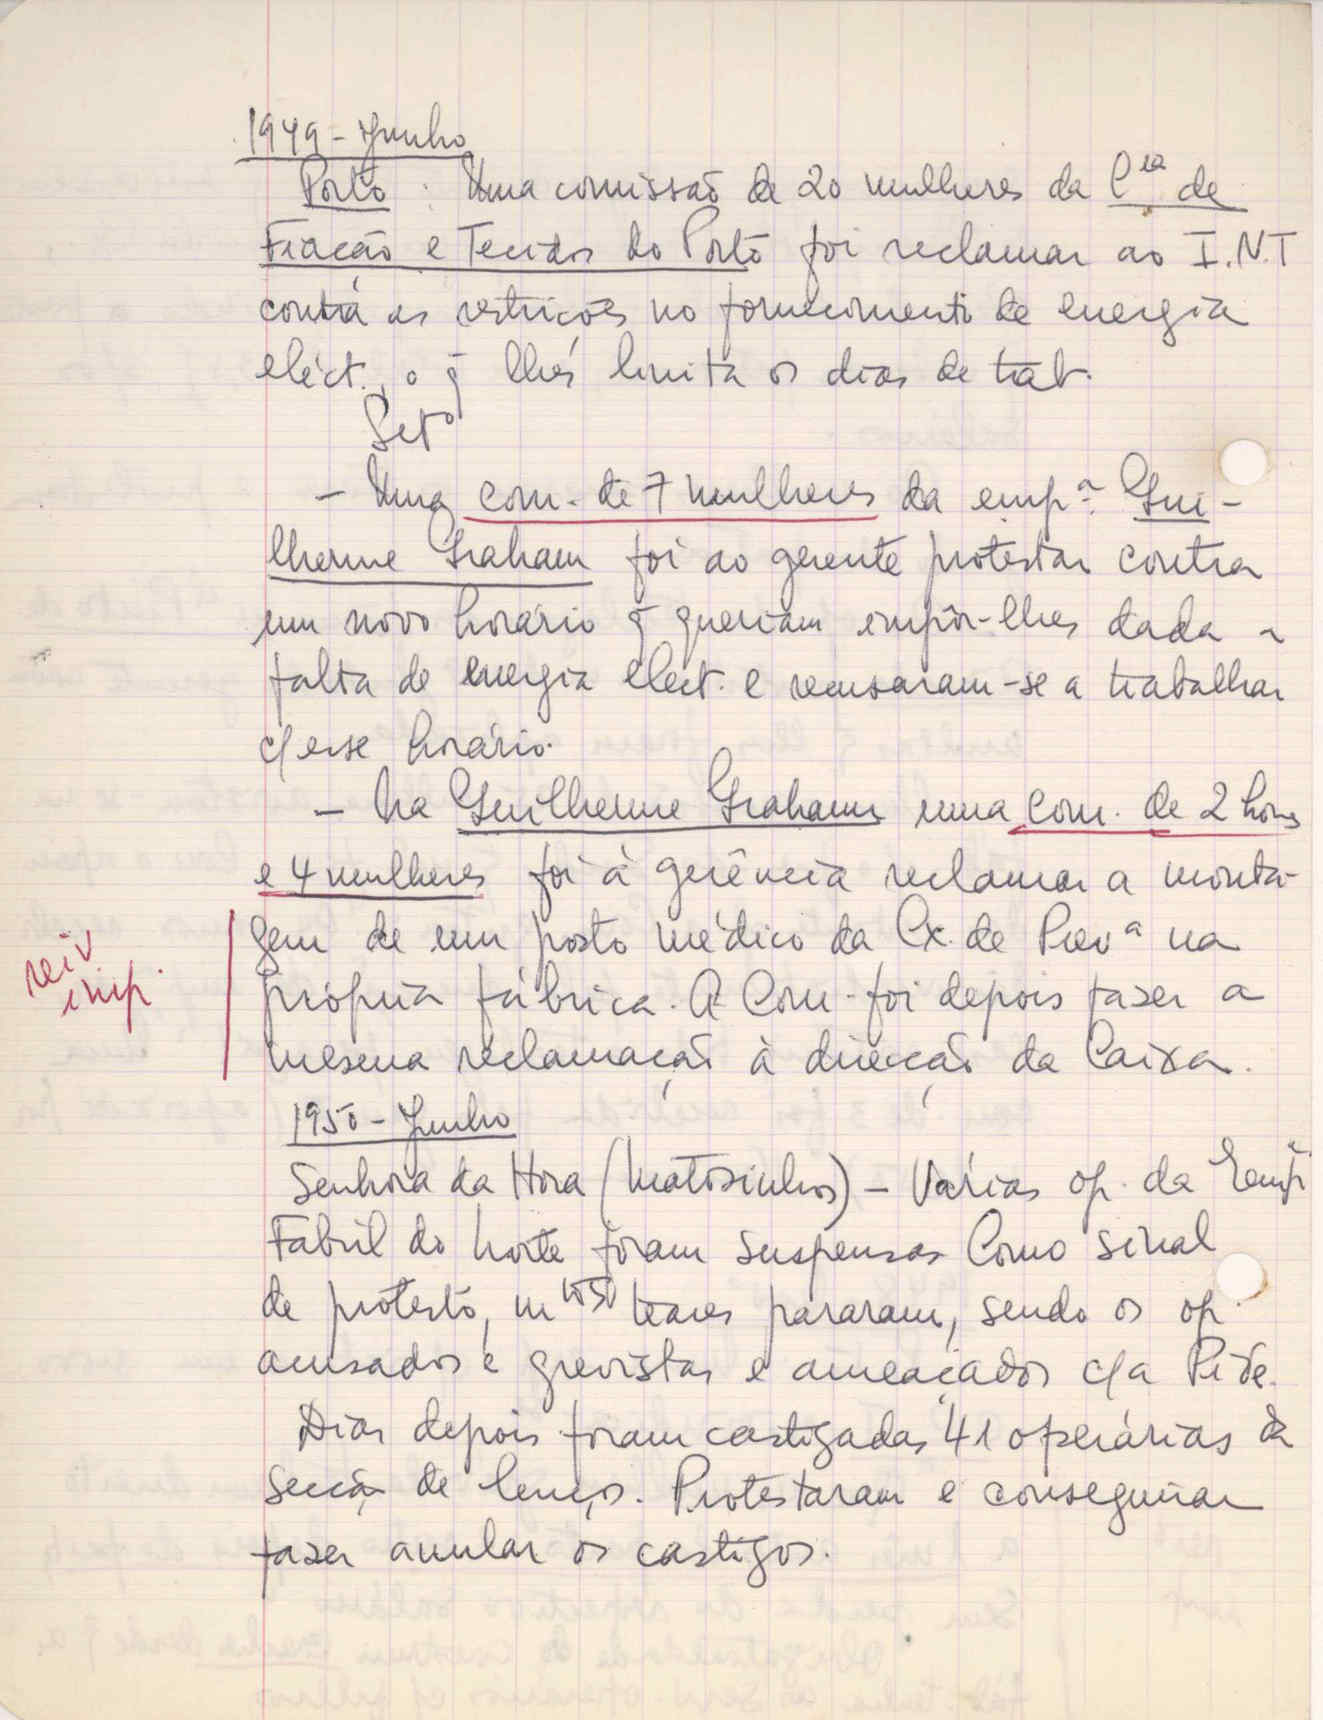 1949 - Junho
Porto : Uma comissão de 20 mulheres da Cia de
Fiação e Tecidos do Porto foi reclamar ao I.N.T
contra as restrições no fornecimento de energia
eléct., o q̃ lhes limita os dias de trab.
Setº
- Uma com. de 7 mulheres da empª. Gui-
lherme Graham foi ao gerente protestar contra
um novo horário q̃ queriam impôr-lhes dada a
falta de energia eléct. e recusaram-se a trabalhar
c/ esse horário.
- Na Guilherme Graham uma com. de 2 homs
e 4 mulheres foi à gerência reclamar a monta-
gem de um posto médico da Cx. de Prevª na
própria fábrica. A Com. foi depois fazer a
mesma reclamação à direcção da Caixa.
reiv
imp.
1950 - Junho
Senhora da Hora (Matosinhos) - Várias op. da Empª
Fabril do Norte foram suspensas Como sinal
de protesto, mtos teares pararam, sendo os op.
acusados e grevistas e ameaçados c/a Pide.
Dias depois foram castigadas 41 operárias da
secção de lenços. Protestaram e conseguiram
fazer anular os castigos.